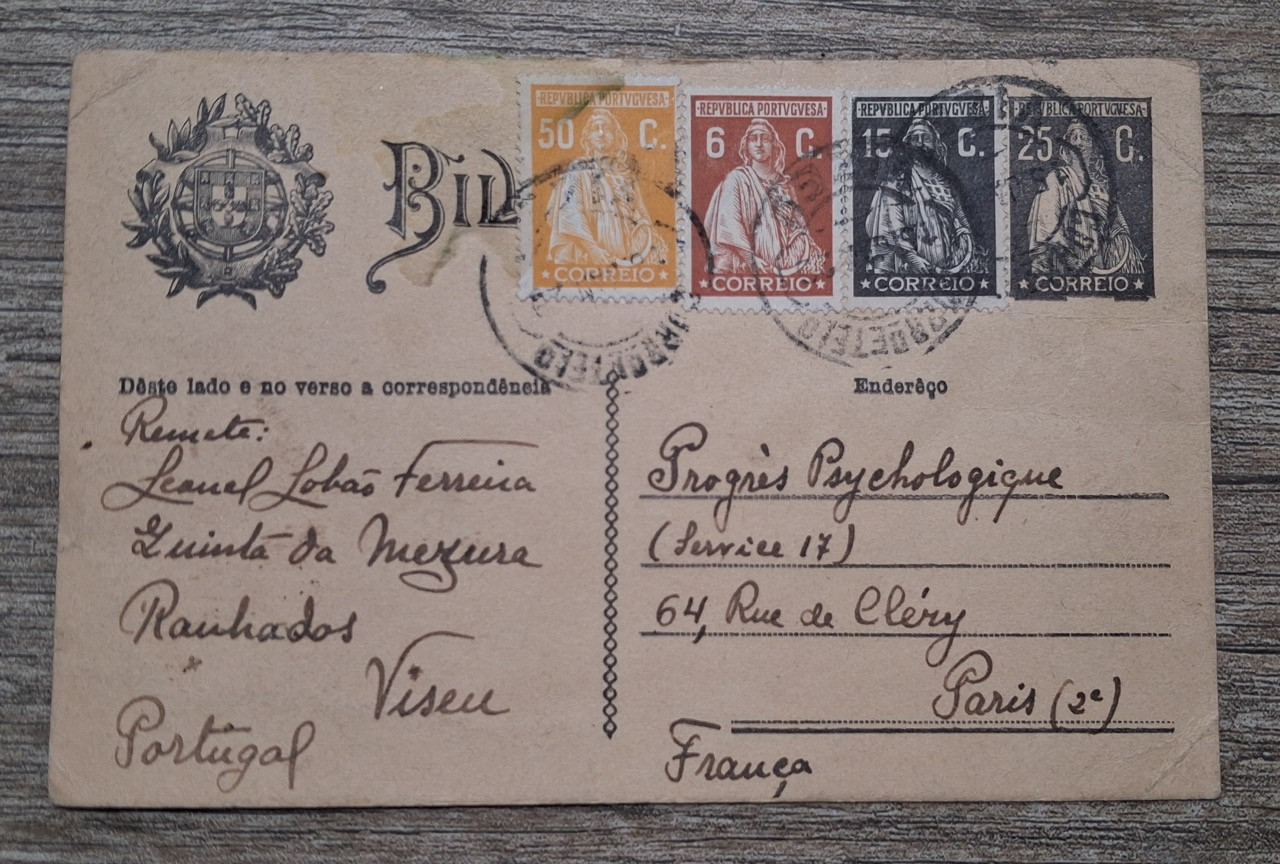 REPVBLICA PORTVGVESA
50 C.
CORREIO
REPVBLICA PORTVGVESA
6 C.
CORREIO
REPVBLICA PORTVGVESA
15 C.
CORREIO
REPVBLICA PORTVGVESA
25 C.
CORREIO
Bil
Dêste lado e no verso a correspondência
Remete:
Leonel Lobão Ferreira
Quintã da Mezura
Ranhados
Viseu
Portugal
Enderêço
Progrès Psychologique
(Service 17)
64, Rue de Cléry
Paris (2e)
França